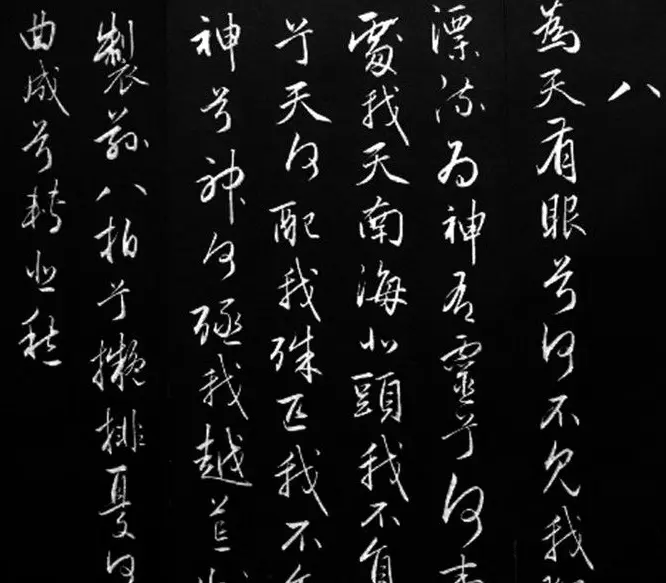 八
為天有眼兮何不見我
漂流為神有靈兮何事
處我天南海北頭我不負
兮天何配我殊匹我不
神兮神何殛我越荒
製茲八拍兮擬排憂何
曲成兮轉悲愁